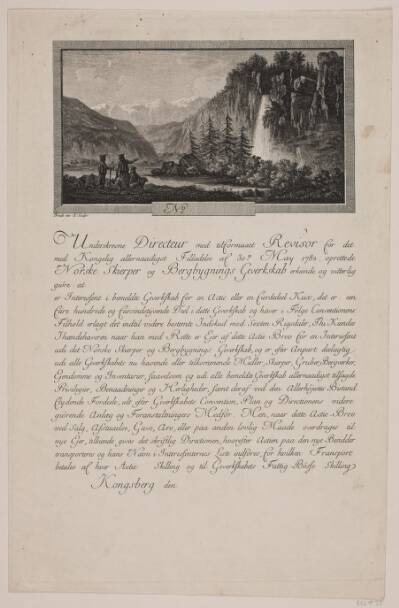 No
Underskrevne Directeur med tilforordnet Revisor for det
med Kongelig allernaadigst Tilladelse af 30te May 1782 oprettede
Norske Skiærper og Bergbygnings Gverkskab erkiende og vitterlig
giøre at
er Interessent i bemeldte Gverkskab for en Actie eller en Fierdedeel Kux, det er en
Fire hundrede og Deel i dette Gverkskab og haver i Følge Conventionens
Tilhold erlagt det indtil videre bestemte Indskud med Sexten Rigsdaler, Thi Kiendes
Ihændehaveren naar han med Rette er Ejer af dette Actie Brev for en Interessent
udi det Norske Skiærper og Bergbygnings Gverkskab, og er efter Anpart deelagtig
udi alle Gverkskabets nu havende eller tilkommende Midler, Skiærper, Gruber, Bergverker,
Ejendomme og Inventarier, saavelsom og udi alle bemeldte Gverkskab allernaadigst tilsagde
Privilegier, Benaadninger og Herligheder, samt deraf ved den Allerhøiestes Bistand
flydende Fordeele, alt efter Gverkskabets Convention, Plan og Directionens videre
giørende Anlæg og Foranstaltningers Medfør. Men, naar dette Actie Brev
ved Salg, Afstaaelse, Gave, Arv, eller paa anden lovlig Maade overdrages til
nye Ejer, tilkiende gives det skriftlig Directionen, hvorefter Actien paa den nye Besidder
transporteres og hans Navn i Interessenternes Liste indføres, for hvilken Transport
betales af hver Actie Skilling og til Gverkskabets Fattig Bøsse Skilling
Kongsberg den